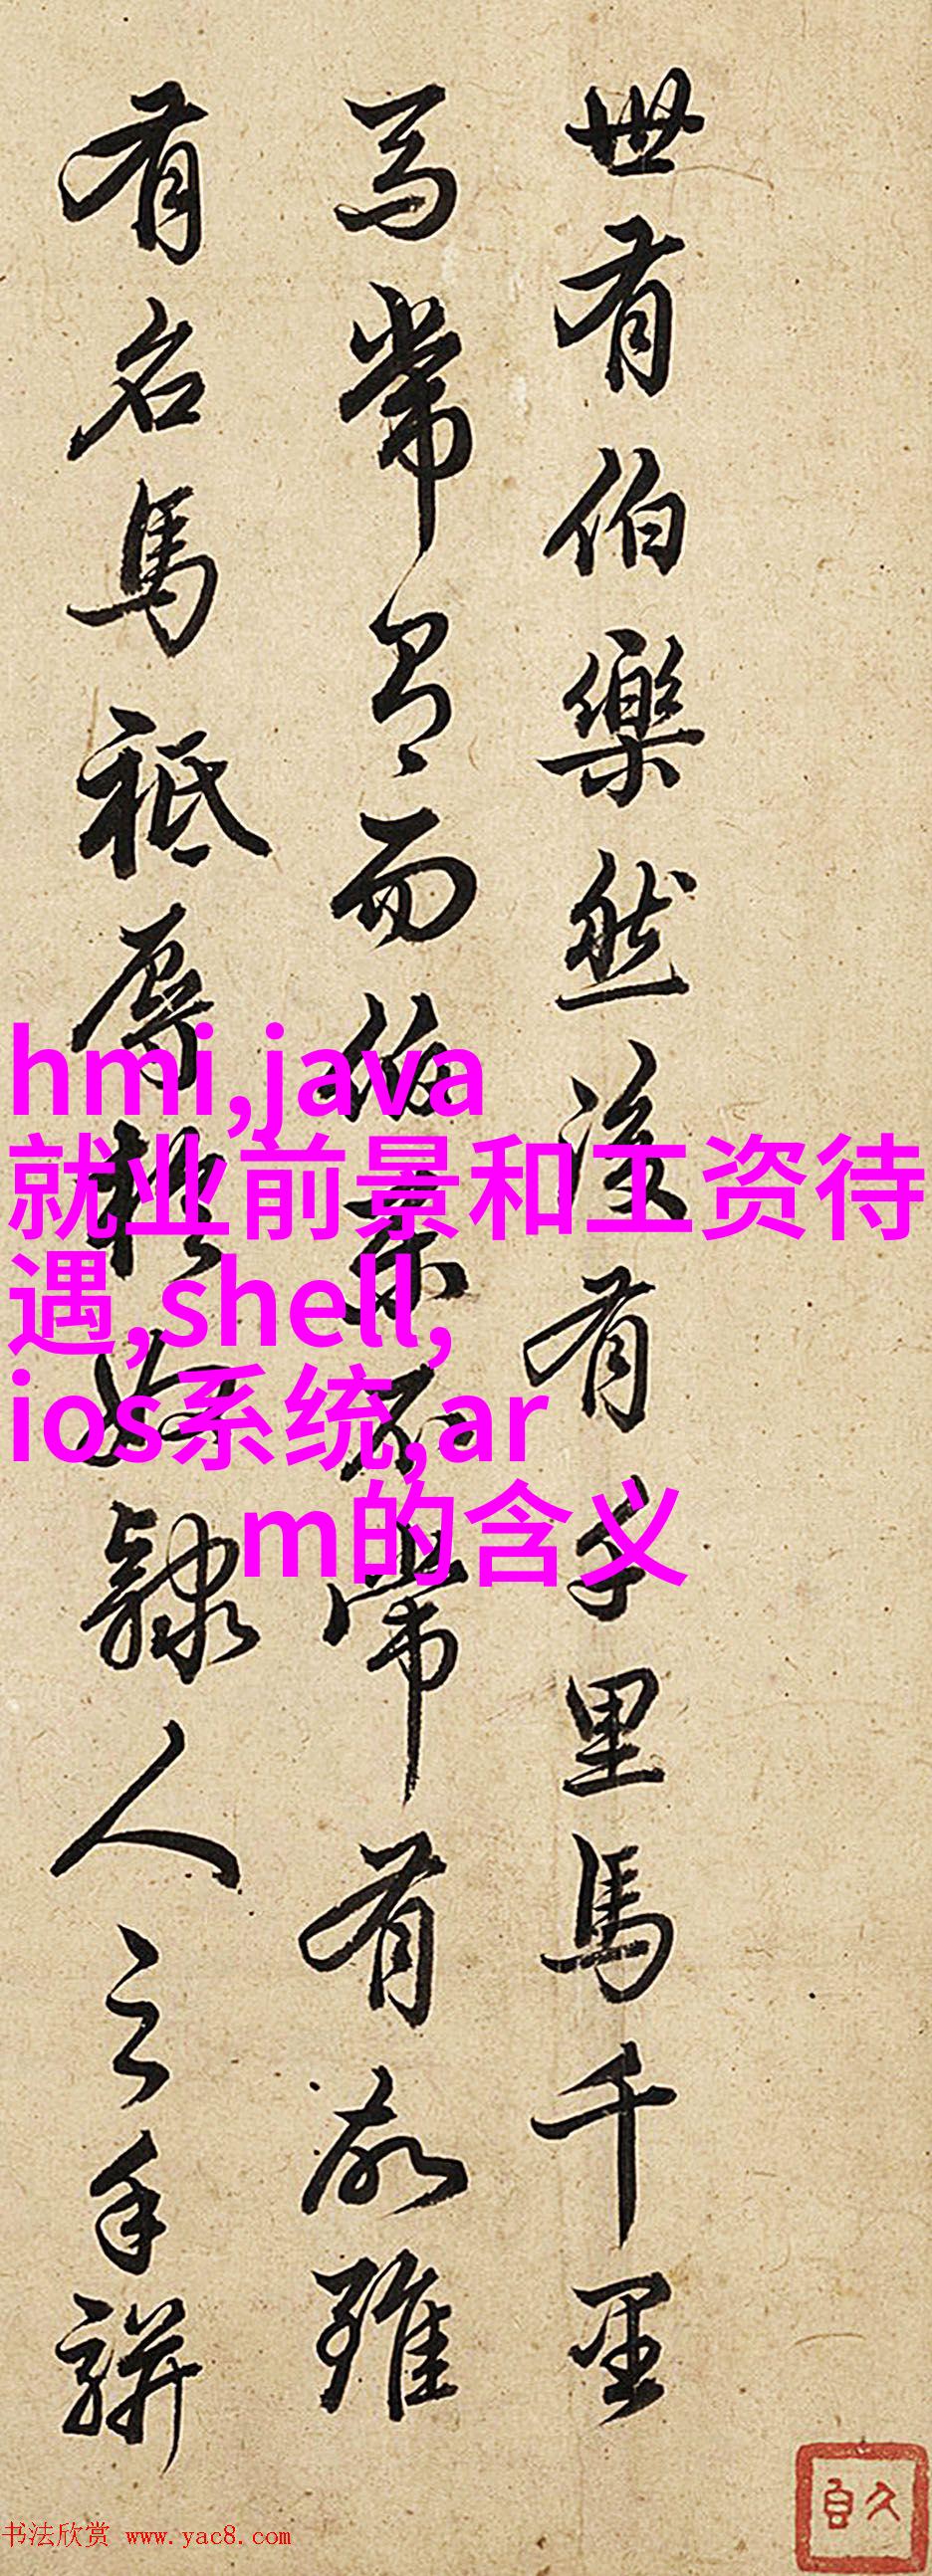 世有伯樂然後有千里馬千里
馬常有而伯樂不常有故雖
有名馬祇辱於奴隸人之手駢
hmi,java
就业前景和工资待
遇,shell,
ios系统,ar
m的含义
书法欣赏 www.yac8.com